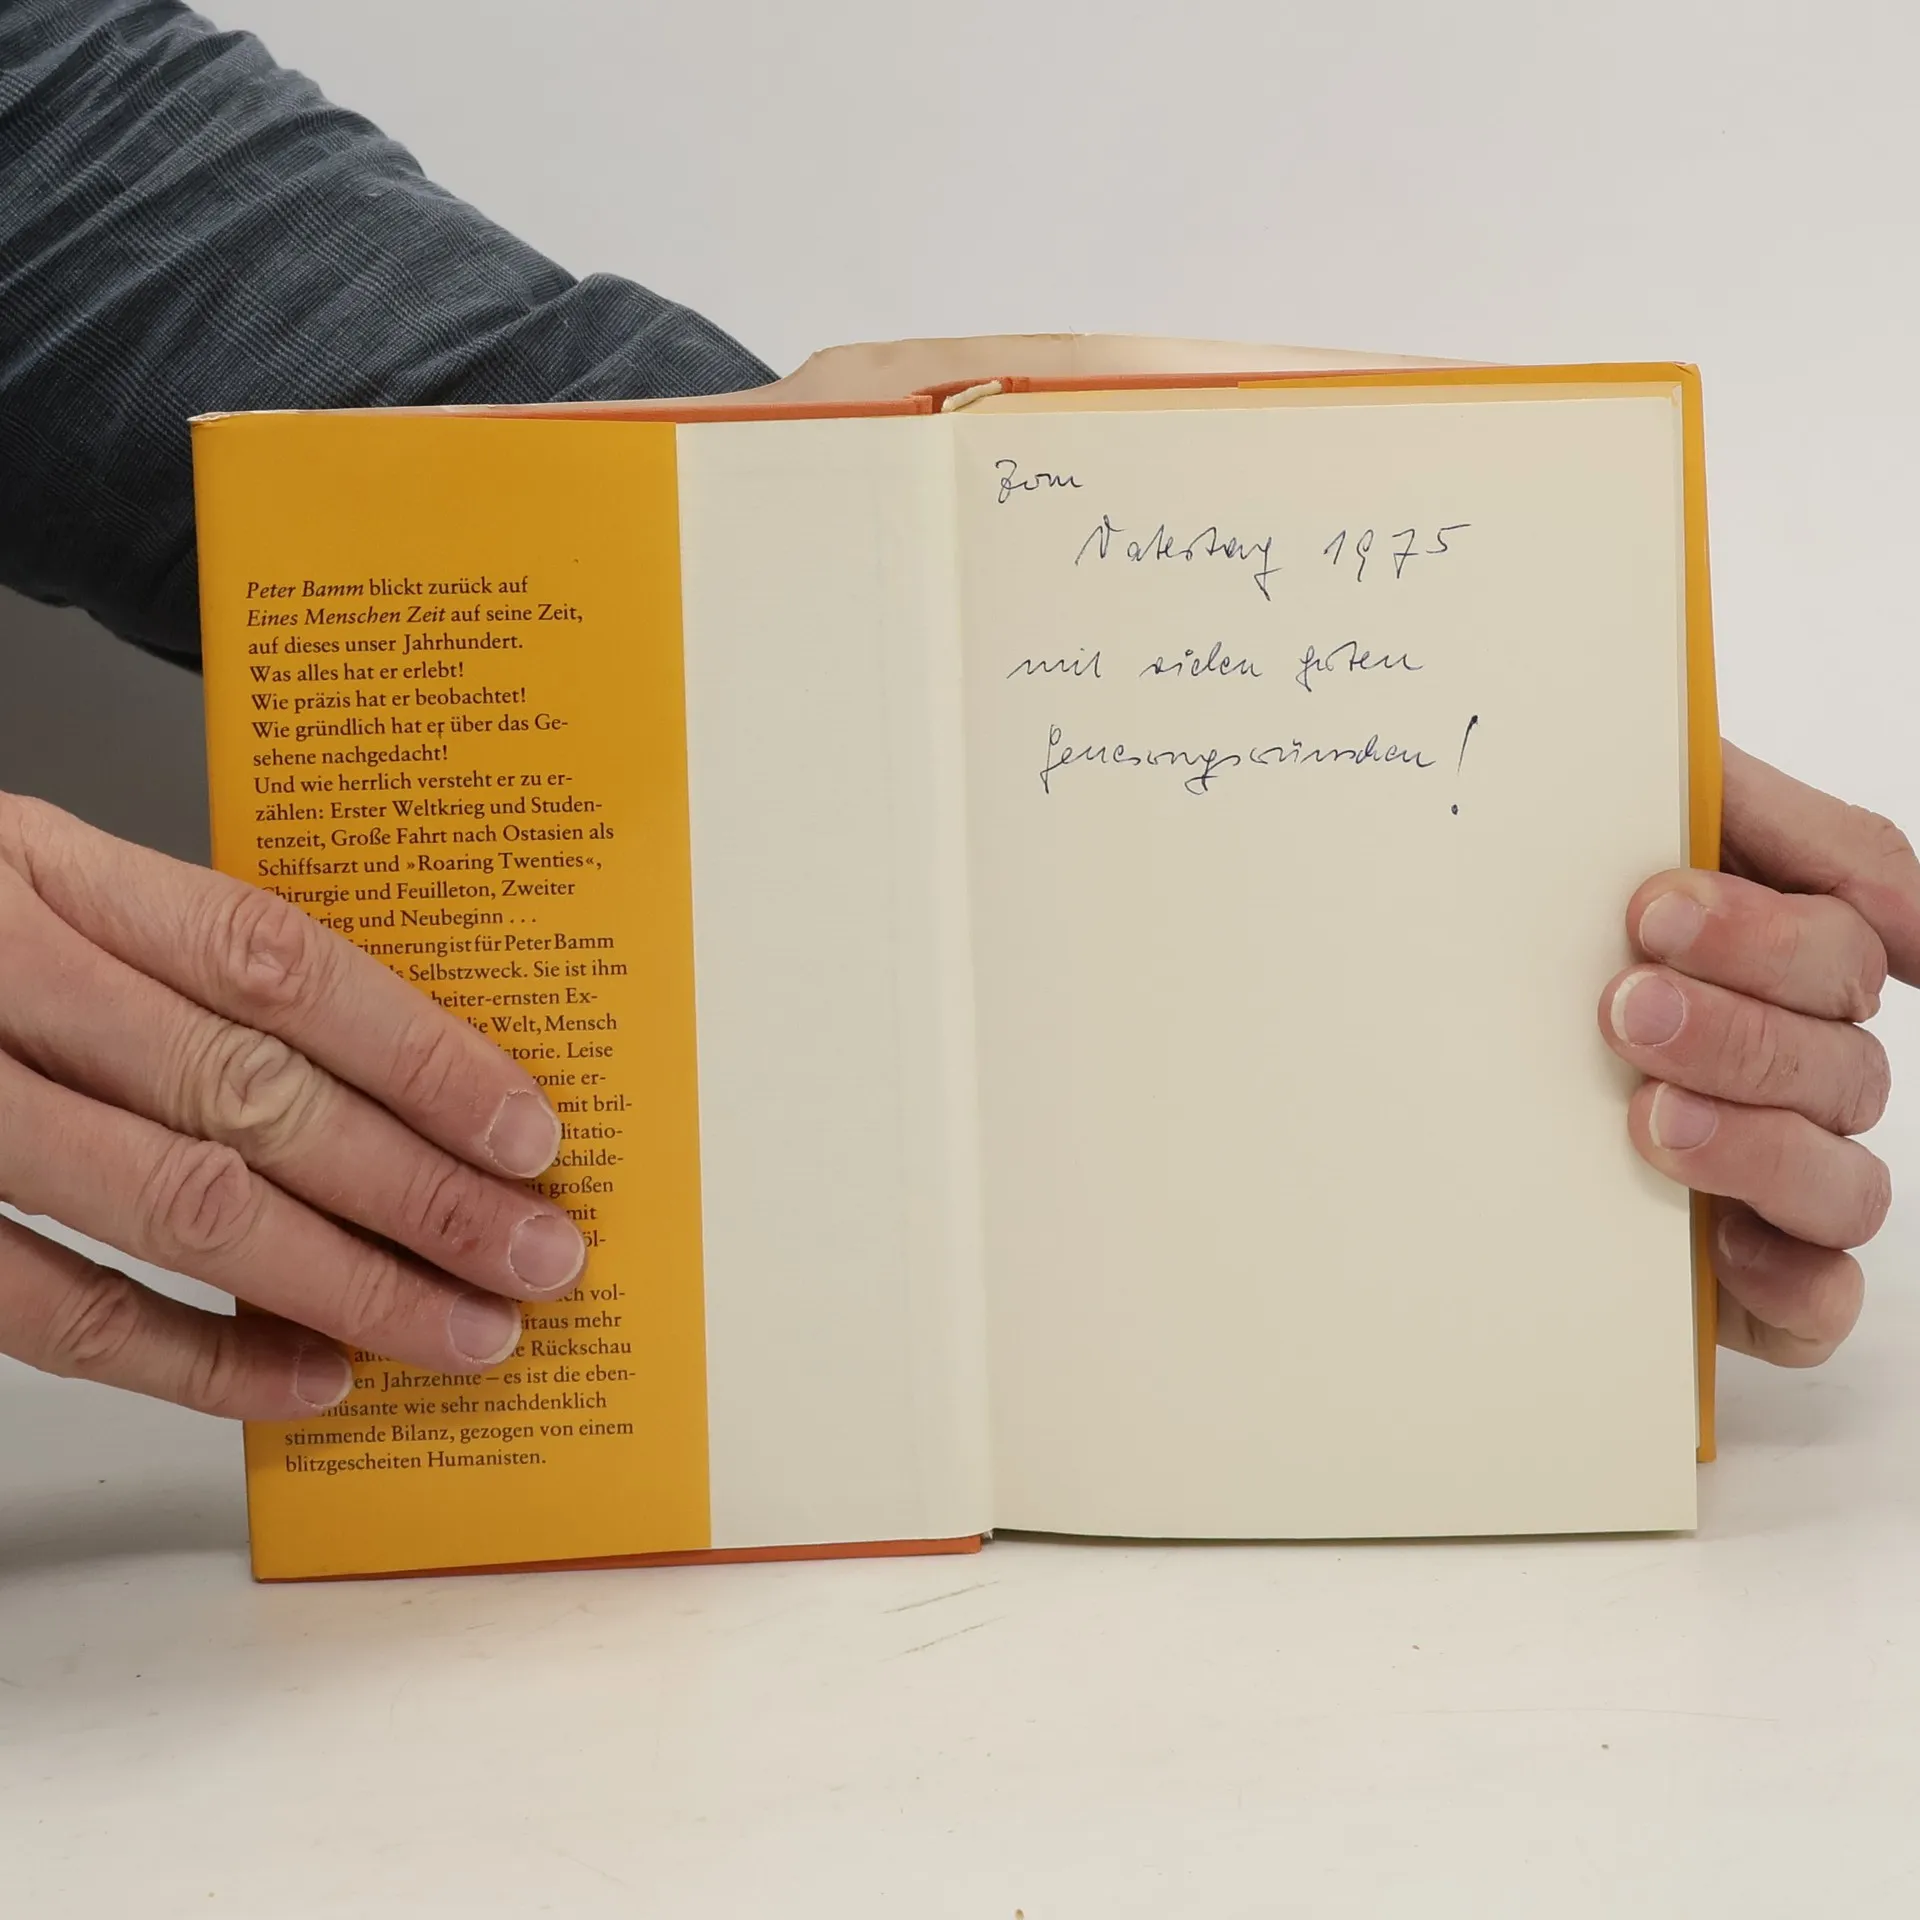 Peter Bamm blickt zurück auf
Eines Menschen Zeit auf seine Zeit,
auf dieses unser Jahrhundert.
Was alles hat er erlebt!
Wie präzis hat er beobachtet!
Wie gründlich hat er über das Ge-
sehene nachgedacht!
Und wie herrlich versteht er zu er-
zählen: Erster Weltkrieg und Studen-
tenzeit, Große Fahrt nach Ostasien als
Schiffsarzt und »Roaring Twenties«,
Chirurgie und Feuilleton, Zweiter
und Neubeginn . . .
ist für Peter Bamm
Selbstzweck. Sie ist ihm
heiter-ernsten Ex-
die Welt, Mensch
Leise
er-
mit bril-
Schilde-
großen
mit
vol-
mehr
Rückschau
Jahrzehnte – es ist die eben-
wie sehr nachdenklich
stimmende Bilanz, gezogen von einem
blitzgescheiten Humanisten.
Zum
Vatertag 1975
mit vielen guten
Genesungswünschen!